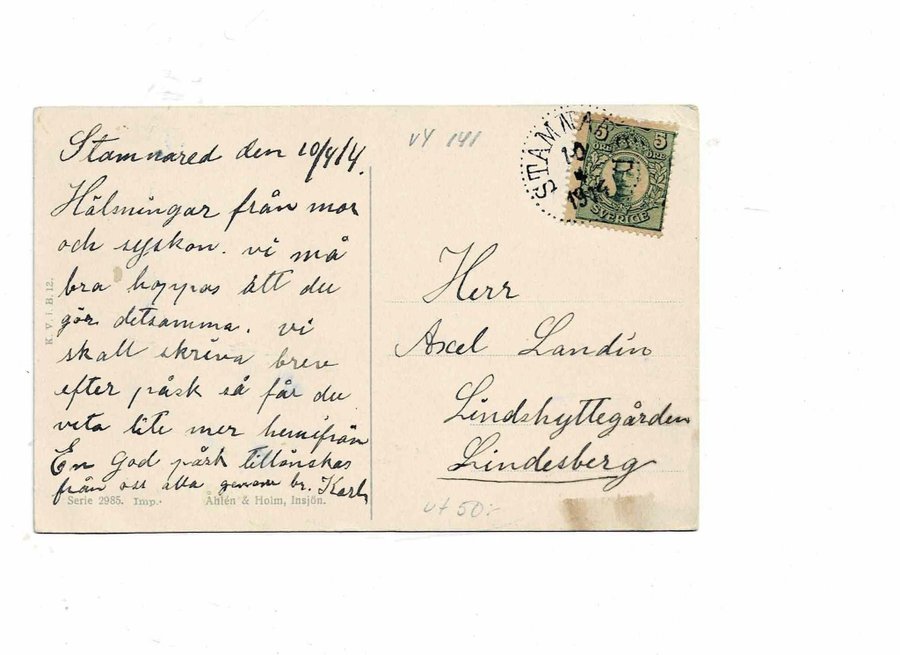 Stamnared den 10/4/14.
Hälsningar från mor
och syskon. vi må
bra hoppas att du
gör detsamma. vi
skall skriva brev
efter påsk så får du
veta lite mer hemifrån
En God påsk tillönskas
från oss alla genom br. Karl
K. V. I. B. 12.
Serie 2985. Imp.
Åhlén & Holm, Insjön.
VY 141
STAMNARED
10 4
1914
5 5
ÖRE ÖRE
SVERIGE
Herr
Axel Landin
Lindshyttegården
Lindesberg
ut 50:-